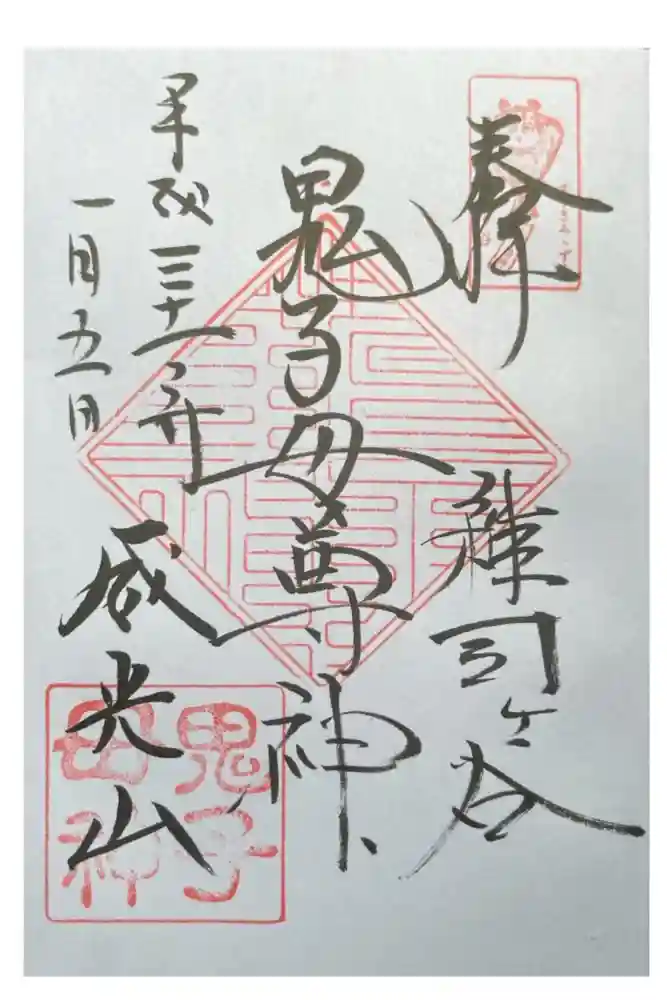 奉拝
雑司ヶ谷
鬼子母尊神
平成三十一年
一月五日
威光山
鬼子
母神